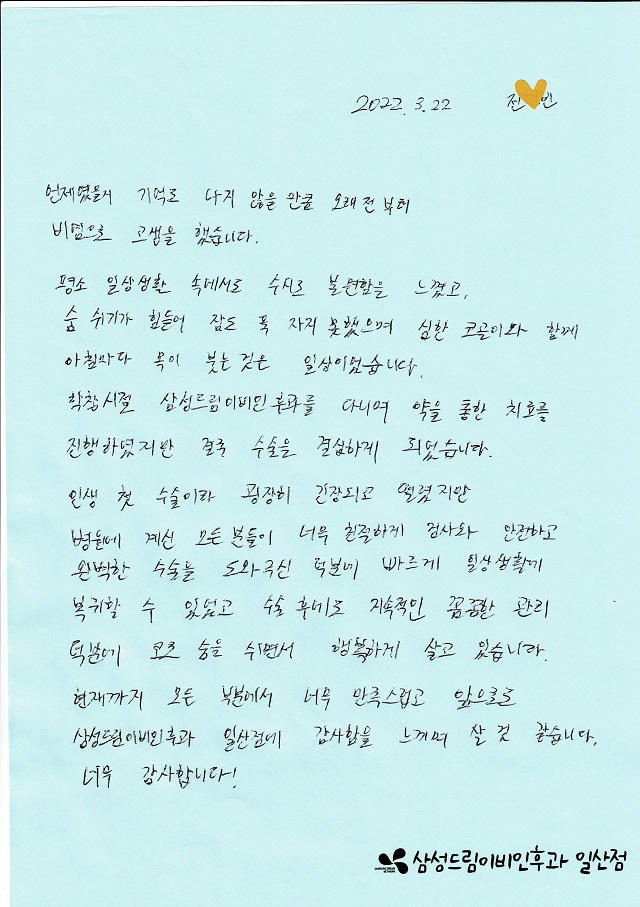 2022. 3. 22 전 민
언제였을지 기억도 나지 않을 만큼 오래전부터
비염으로 고생을 했습니다.
평소 일상생활 속에서도 수시로 불편함을 느꼈고,
숨 쉬기가 힘들어 잠도 푹 자지 못했으며 심한 코골이와 함께
아침마다 목이 붓는것은 일상이었습니다.
학창시절 삼성드림이비인후과를 다니며 약을 통한 치료를
진행하였지만 결국 수술을 결심하게 되었습니다.
인생 첫 수술이라 굉장히 긴장되고 떨렸지만
병원에 계신 모든분들이 너무 친절하게 검사와 안전하고
완벽한 수술을 도와주신 덕분에 빠르게 일상생활에
복귀할 수 있었고 수술 후에도 지속적인 꼼꼼한 관리
덕분에 코로 숨을 쉬면서 행복하게 살고 있습니다.
현재까지 모든 부분에서 너무 만족스럽고 앞으로도
삼성드림이비인후과 일산점에 감사함을 느끼며 살 것 같습니다.
너무 감사합니다!
삼성드림이비인후과 일산점